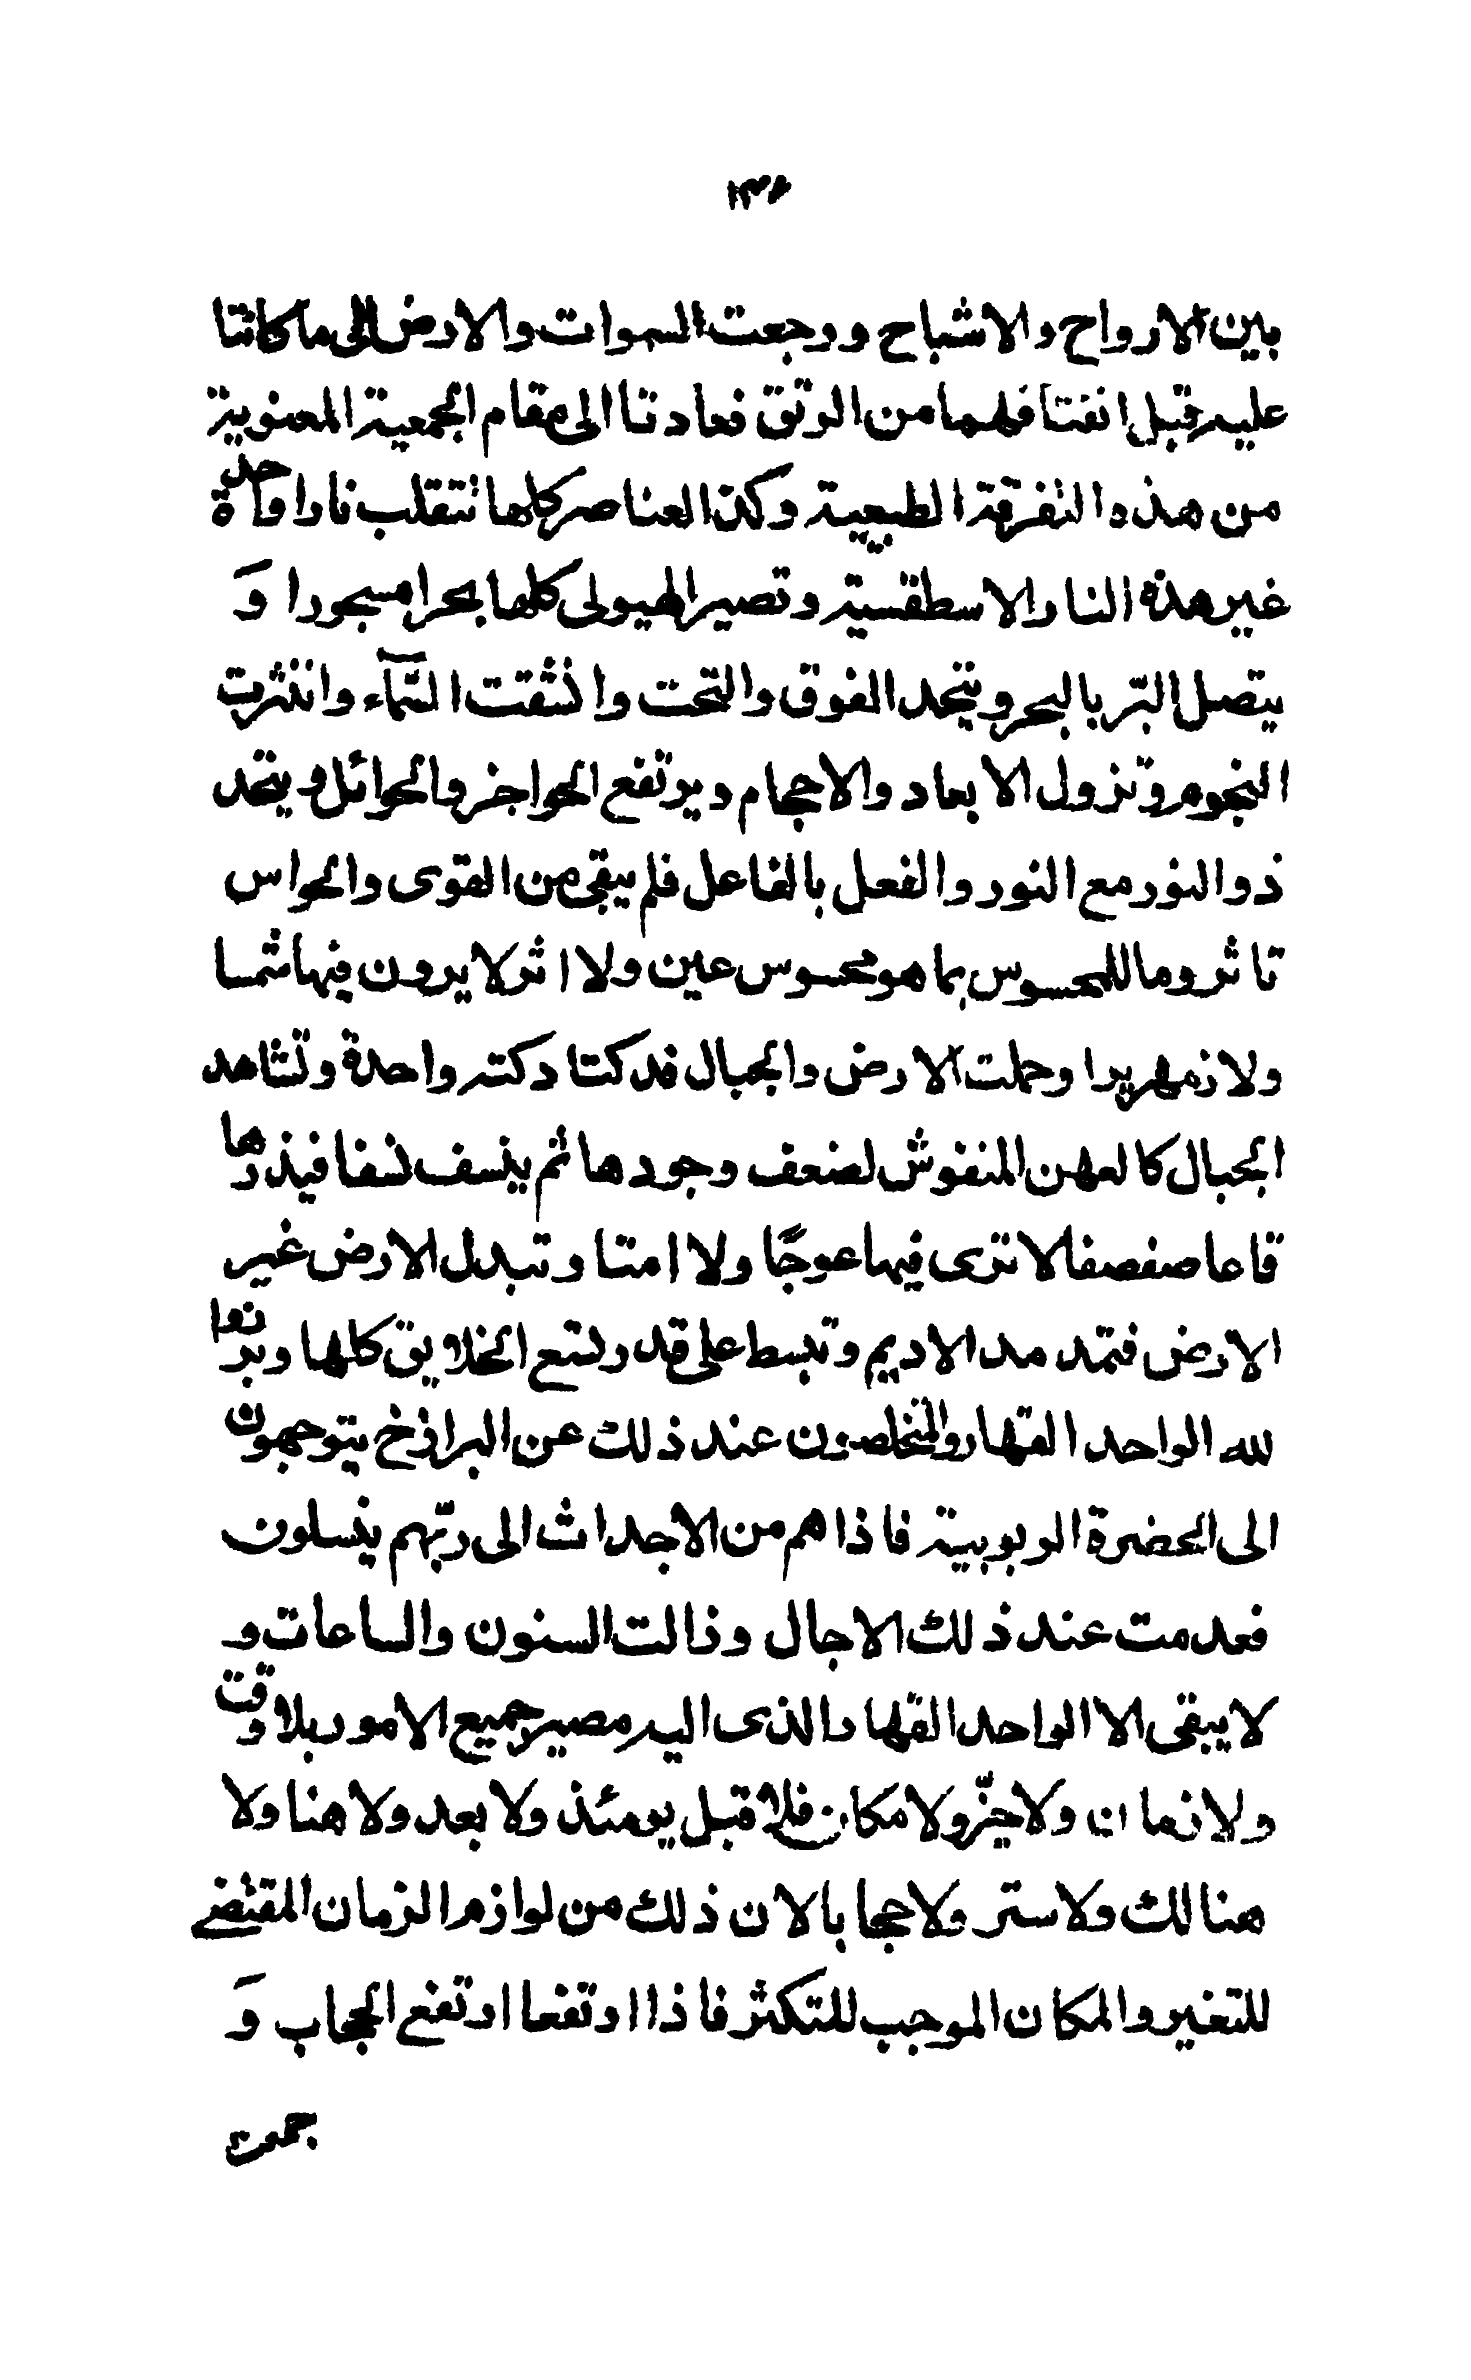 ١٣٤
بين الارواح والاشباح ورجعت السموات والارض الى ما كانتا
عليه قبل انفتاقهما من الرتق فعادتا الى مقام الجمعية المعنوية
من هذه التفرقة الطبيعية وكذا العناصر كلها تنقلب نارا واحدة
غير هذه النار الاسطقسية وتصير الهيولى كلها بحرا مسجورا وَ
يتصل البّر بالبحر ويتحد الفوق والتحت وانشقت السّمآء وانتثرت
النجوم وتزول الابعاد والاحجام ويرتفع الحواجز والحوائل ويتحد
ذو النور مع النور والفعل بالفاعل فلم يبقى من القوى والحواس
تاثر وما للمحسوس بما هو محسوس عين ولا اثر لا يرون فيها شمسا
ولا زمهريرا وحملت الارض والجبال فدكتا دكته واحدة وتشاهد
الجبال كالعهن المنفوش لضعف وجودها ثم ينسف نسفا فيذرها
قاعا صفصفا لا ترى فيها عوجًا ولا امتا وتبدل الارض غير
الارض فتمد مد الاديم وتبسط على قدر لتسع الخلايق كلها وبرزوا
لله الواحد القهار والمتخلصون عند ذلك عن البرازخ يتوجهون
الى الحضرة الربوبية فاذا هم من الاجداث الى ربّهم ينسلون
فعدمت عند ذلك الاجال وزالت السنون والساعات و
لا يبقى الا الواحد القهار الذى اليه مصير جميع الامور بلا وقت
ولا زمان ولا حيّز ولا مكان فلا قبل يومئذ ولا بعد ولا هنا ولا
هنالك ولا ستر ولا حجابا لان ذلك من لوازم الزمان المقتضى
للتغير والمكان الموجب للتكثر فاذا ارتفعا ارتفع الحجاب وَ
جمعت